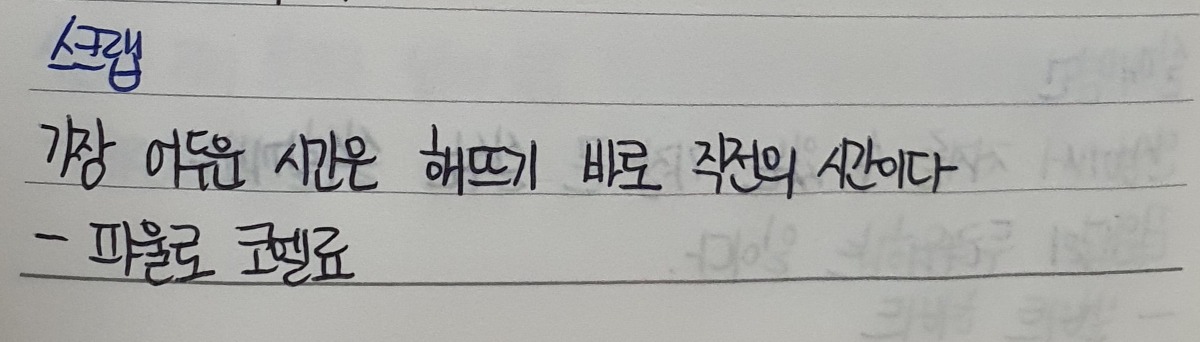 스크랩
가장 어두운 시간은 해뜨기 바로 직전의 시간이다
- 파울로 코엘료